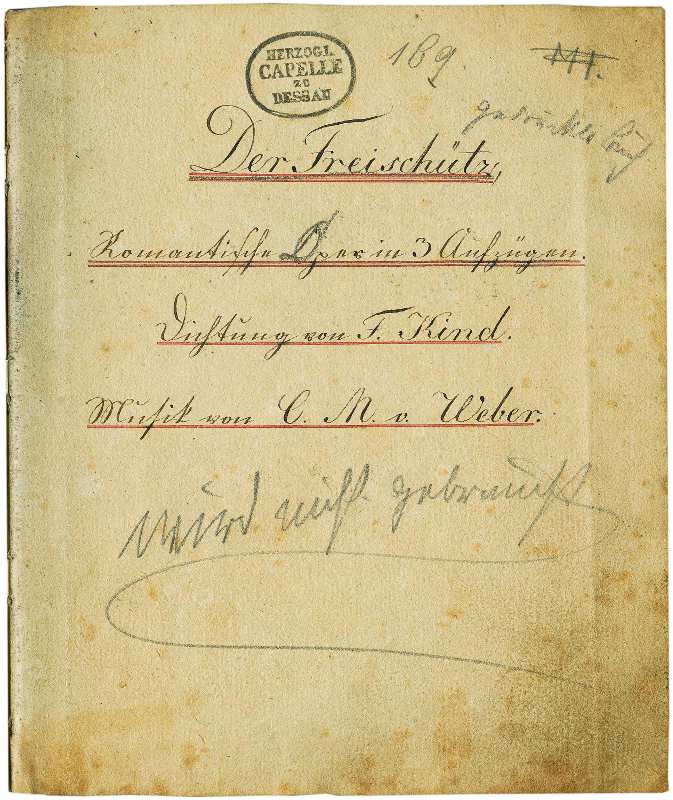 HERZOGL.
CAPELLE
ZU
DESSAU
169.
Der Freischütz,
Romantische Oper in 3 Aufzügen.
Dichtung von F. Kind.
Musik von C. M. v. Weber.
wird nicht gebraucht